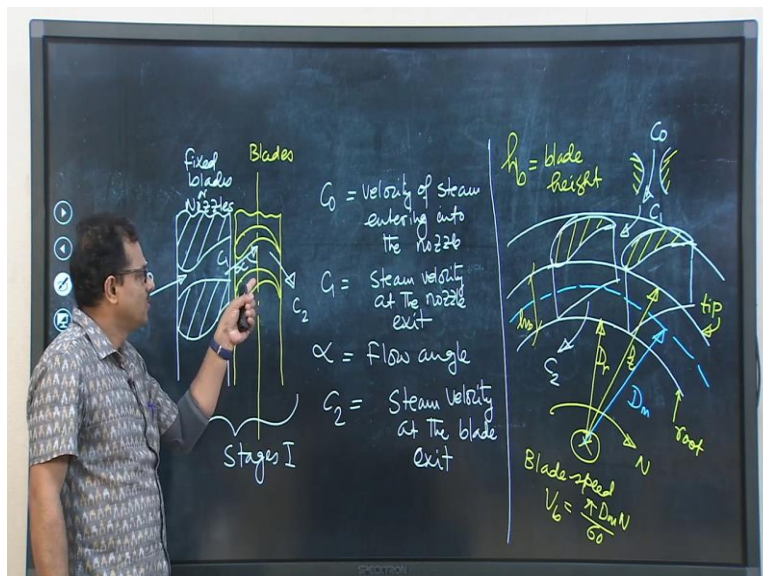 fixed
blades
or
Nozzles
Blades
C1
α
C2
Stages I
C0 = velocity of steam
entering into
the nozzle
C1 = Steam velocity
at the nozzle
exit
α = Flow angle
C2 = Steam velocity
at the blade
exit
hb = blade
height
C0
C1
hb
C2
Dr
tip
Dm
root
N
Blade speed
Vb = πDmN
60
SPECKTRON